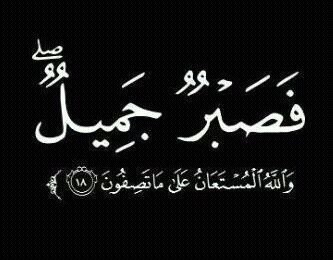 فَصَبْرٌ جَمِيلٌ ۖ
وَٱللَّهُ ٱلْمُسْتَعَانُ عَلَىٰ مَا تَصِفُونَ ١٨